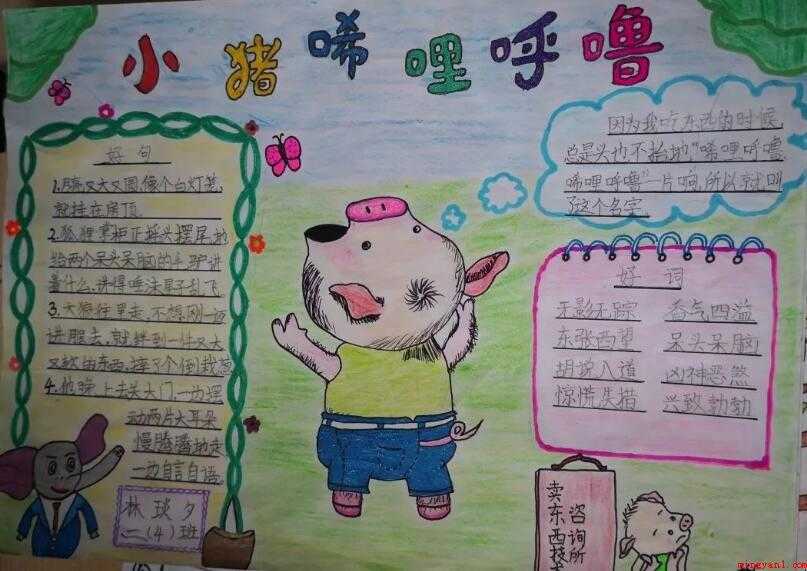 小猪唏哩呼噜
好句
1.脑又大又圆,像个白灯笼,
就挂在房顶。
2.狐狸掌柜正摇头摆尾地
给两个呆头呆脑的毛驴讲
着什么,讲得唾沫星子乱飞
3.大狼往里走,不想刚一迈
进腿去,就绊到一件又大
又软的东西,摔了个倒栽葱
4.他晚上去关大门,一边摆
动两片大耳朵
慢腾腾地走
一边自言自语。
林琰夕
二(4)班
因为我吃东西的时候,
总是头也不抬地"唏哩呼噜
唏哩呼噜"一片响,所以就叫
了这个名字
好词
无影无踪 香气四溢
东张西望 呆头呆脑
胡说八道 凶神恶煞
惊慌失措 兴致勃勃
卖东西技术
咨询所
mingyan1.com